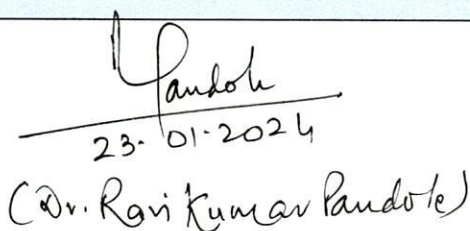 Pandole
23-01-2024
(Dr. Ravi Kumar Pandole)